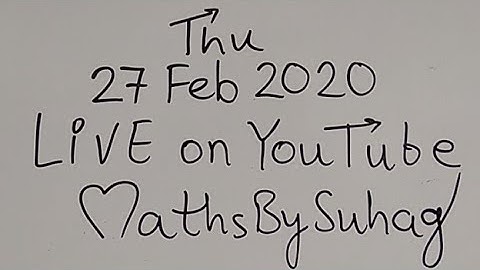 Thu
27 Feb 2020
LiVE on YouTube
MathsBySuhag